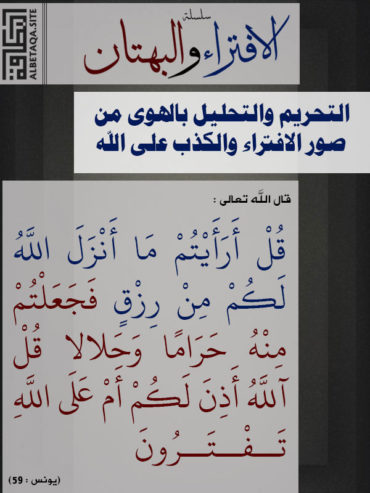 البطاقة
ALBETAQA.SITE
سلسلة
الافتراء والبهتان
التحريم والتحليل بالهوى من
صور الافتراء والكذب على الله
قال الله تعالى :
قُلْ أَرَأَيْتُمْ مَا أَنْزَلَ اللَّهُ
لَكُمْ مِنْ رِزْقٍ فَجَعَلْتُمْ
مِنْهُ حَرَامًا وَحَلَالا قُلْ
آللَّهُ أَذِنَ لَكُمْ أَمْ عَلَى اللَّهِ
تَـفْـتَـرُونَ
(يونس : 59)